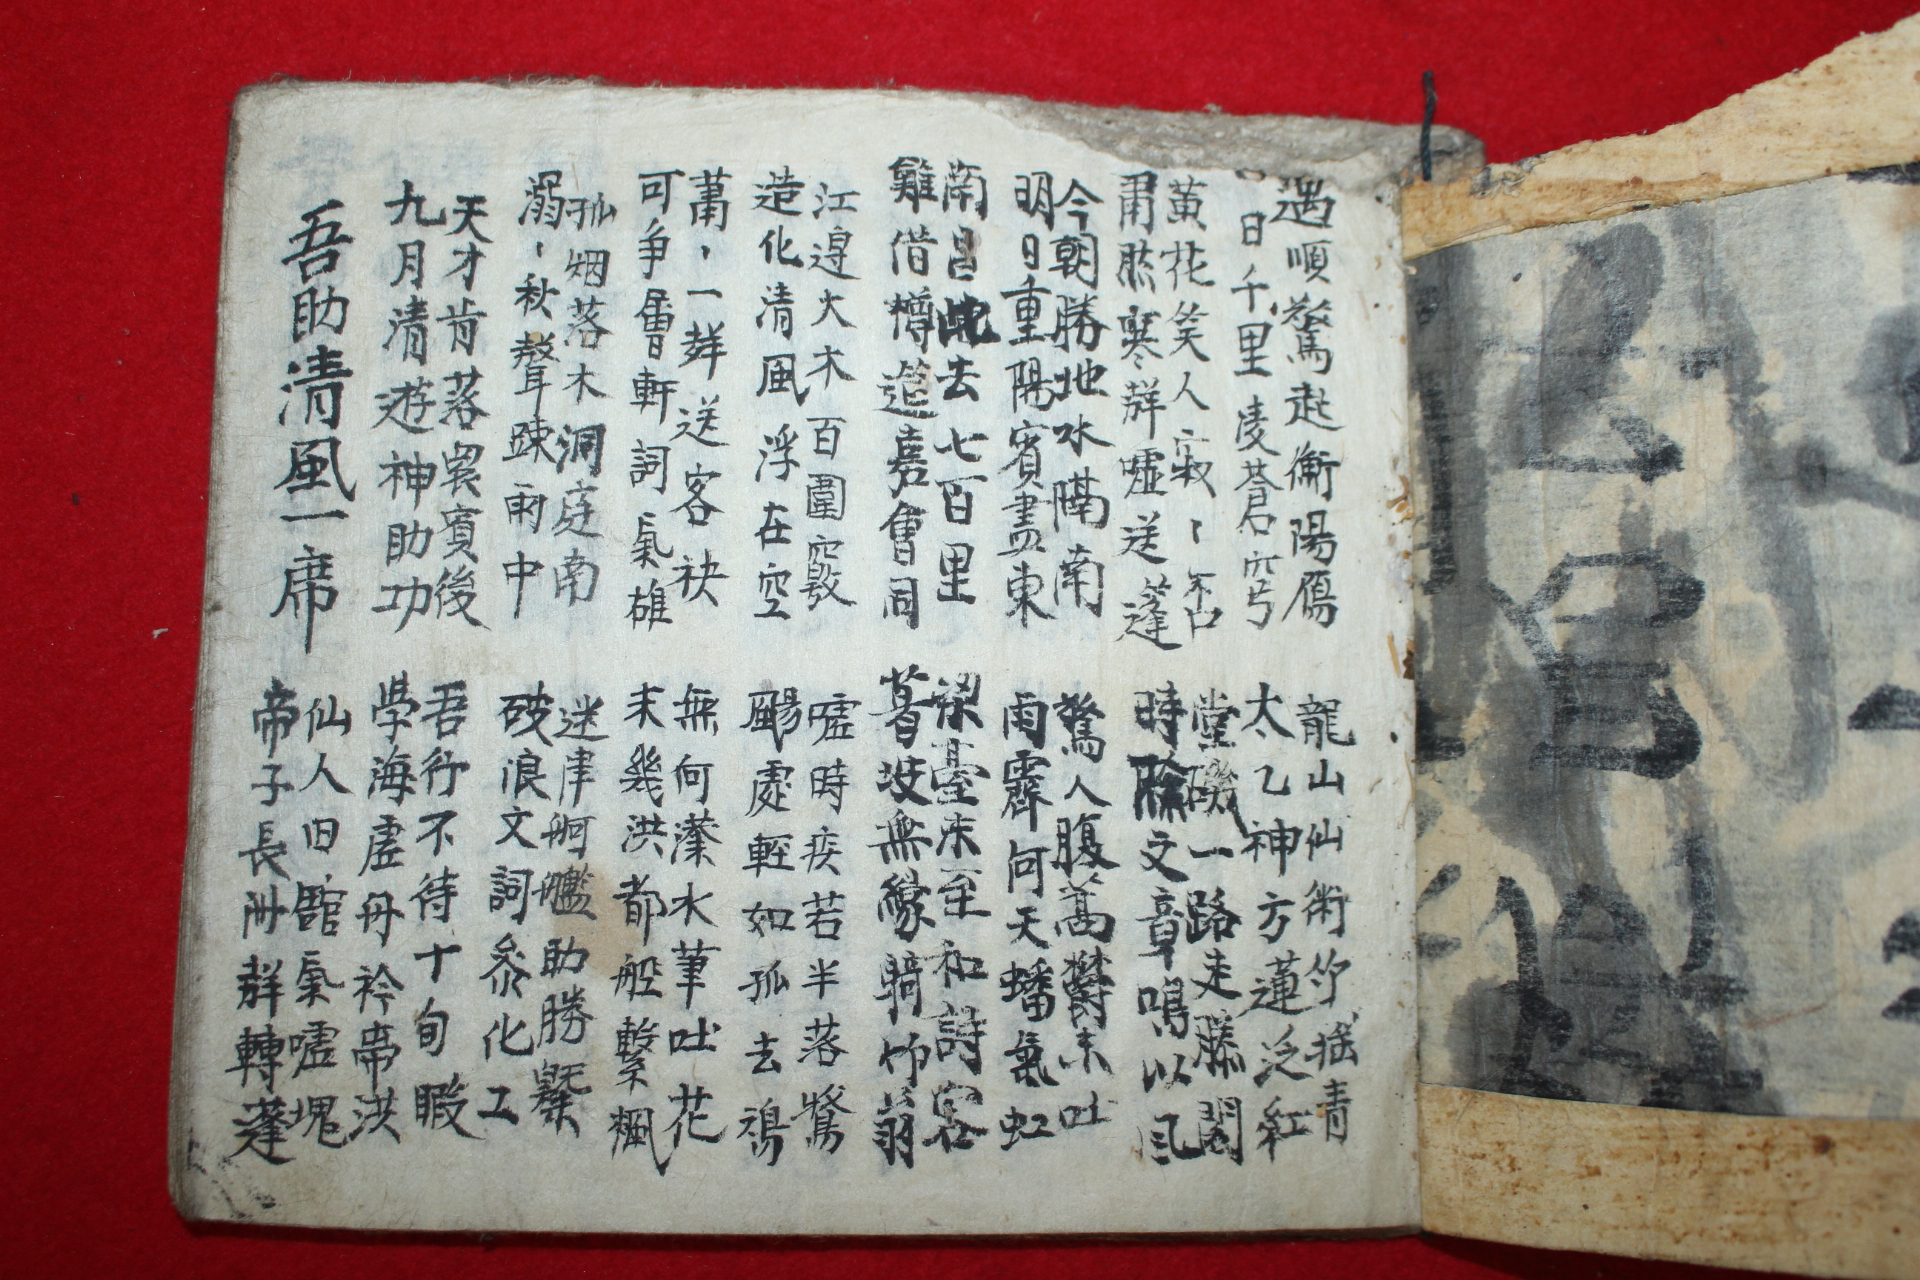 遇順驚起衡陽鴈
日千里凌蒼穹
黃花笑人寂〻否
肅然寒群噓送蓬
今朝勝地水滿南
明日重陽賓盡東
南昌此去七百里
難借樽筵嘉會同
江邊大木百圍竅
造化清風浮在空
蕭〻一群送客袂
可爭層軒詞氣雄
孤烟落木洞庭南
溺〻秋聲踈雨中
天才肯落衆賓後
九月清遊神助功
吾助清風一席
龍山仙術竹搖青
太乙神方蓮泛紅
堂磯一路走滕閣
時際文章鳴以風
驚人腹藁欝未吐
雨霽何天蟠氣虹
梁臺未至和詩客
暮坡無緣騎竹翁
噓時疾若半落鶩
颺處輕如孤去鴻
無何藻水筆吐花
未幾洪都船繫楓
迷津舸艦助勝槩
破浪文詞參化工
吾行不待十旬暇
學海虛舟衿帶洪
仙人旧館氣噓塊
帝子長洲群轉蓬